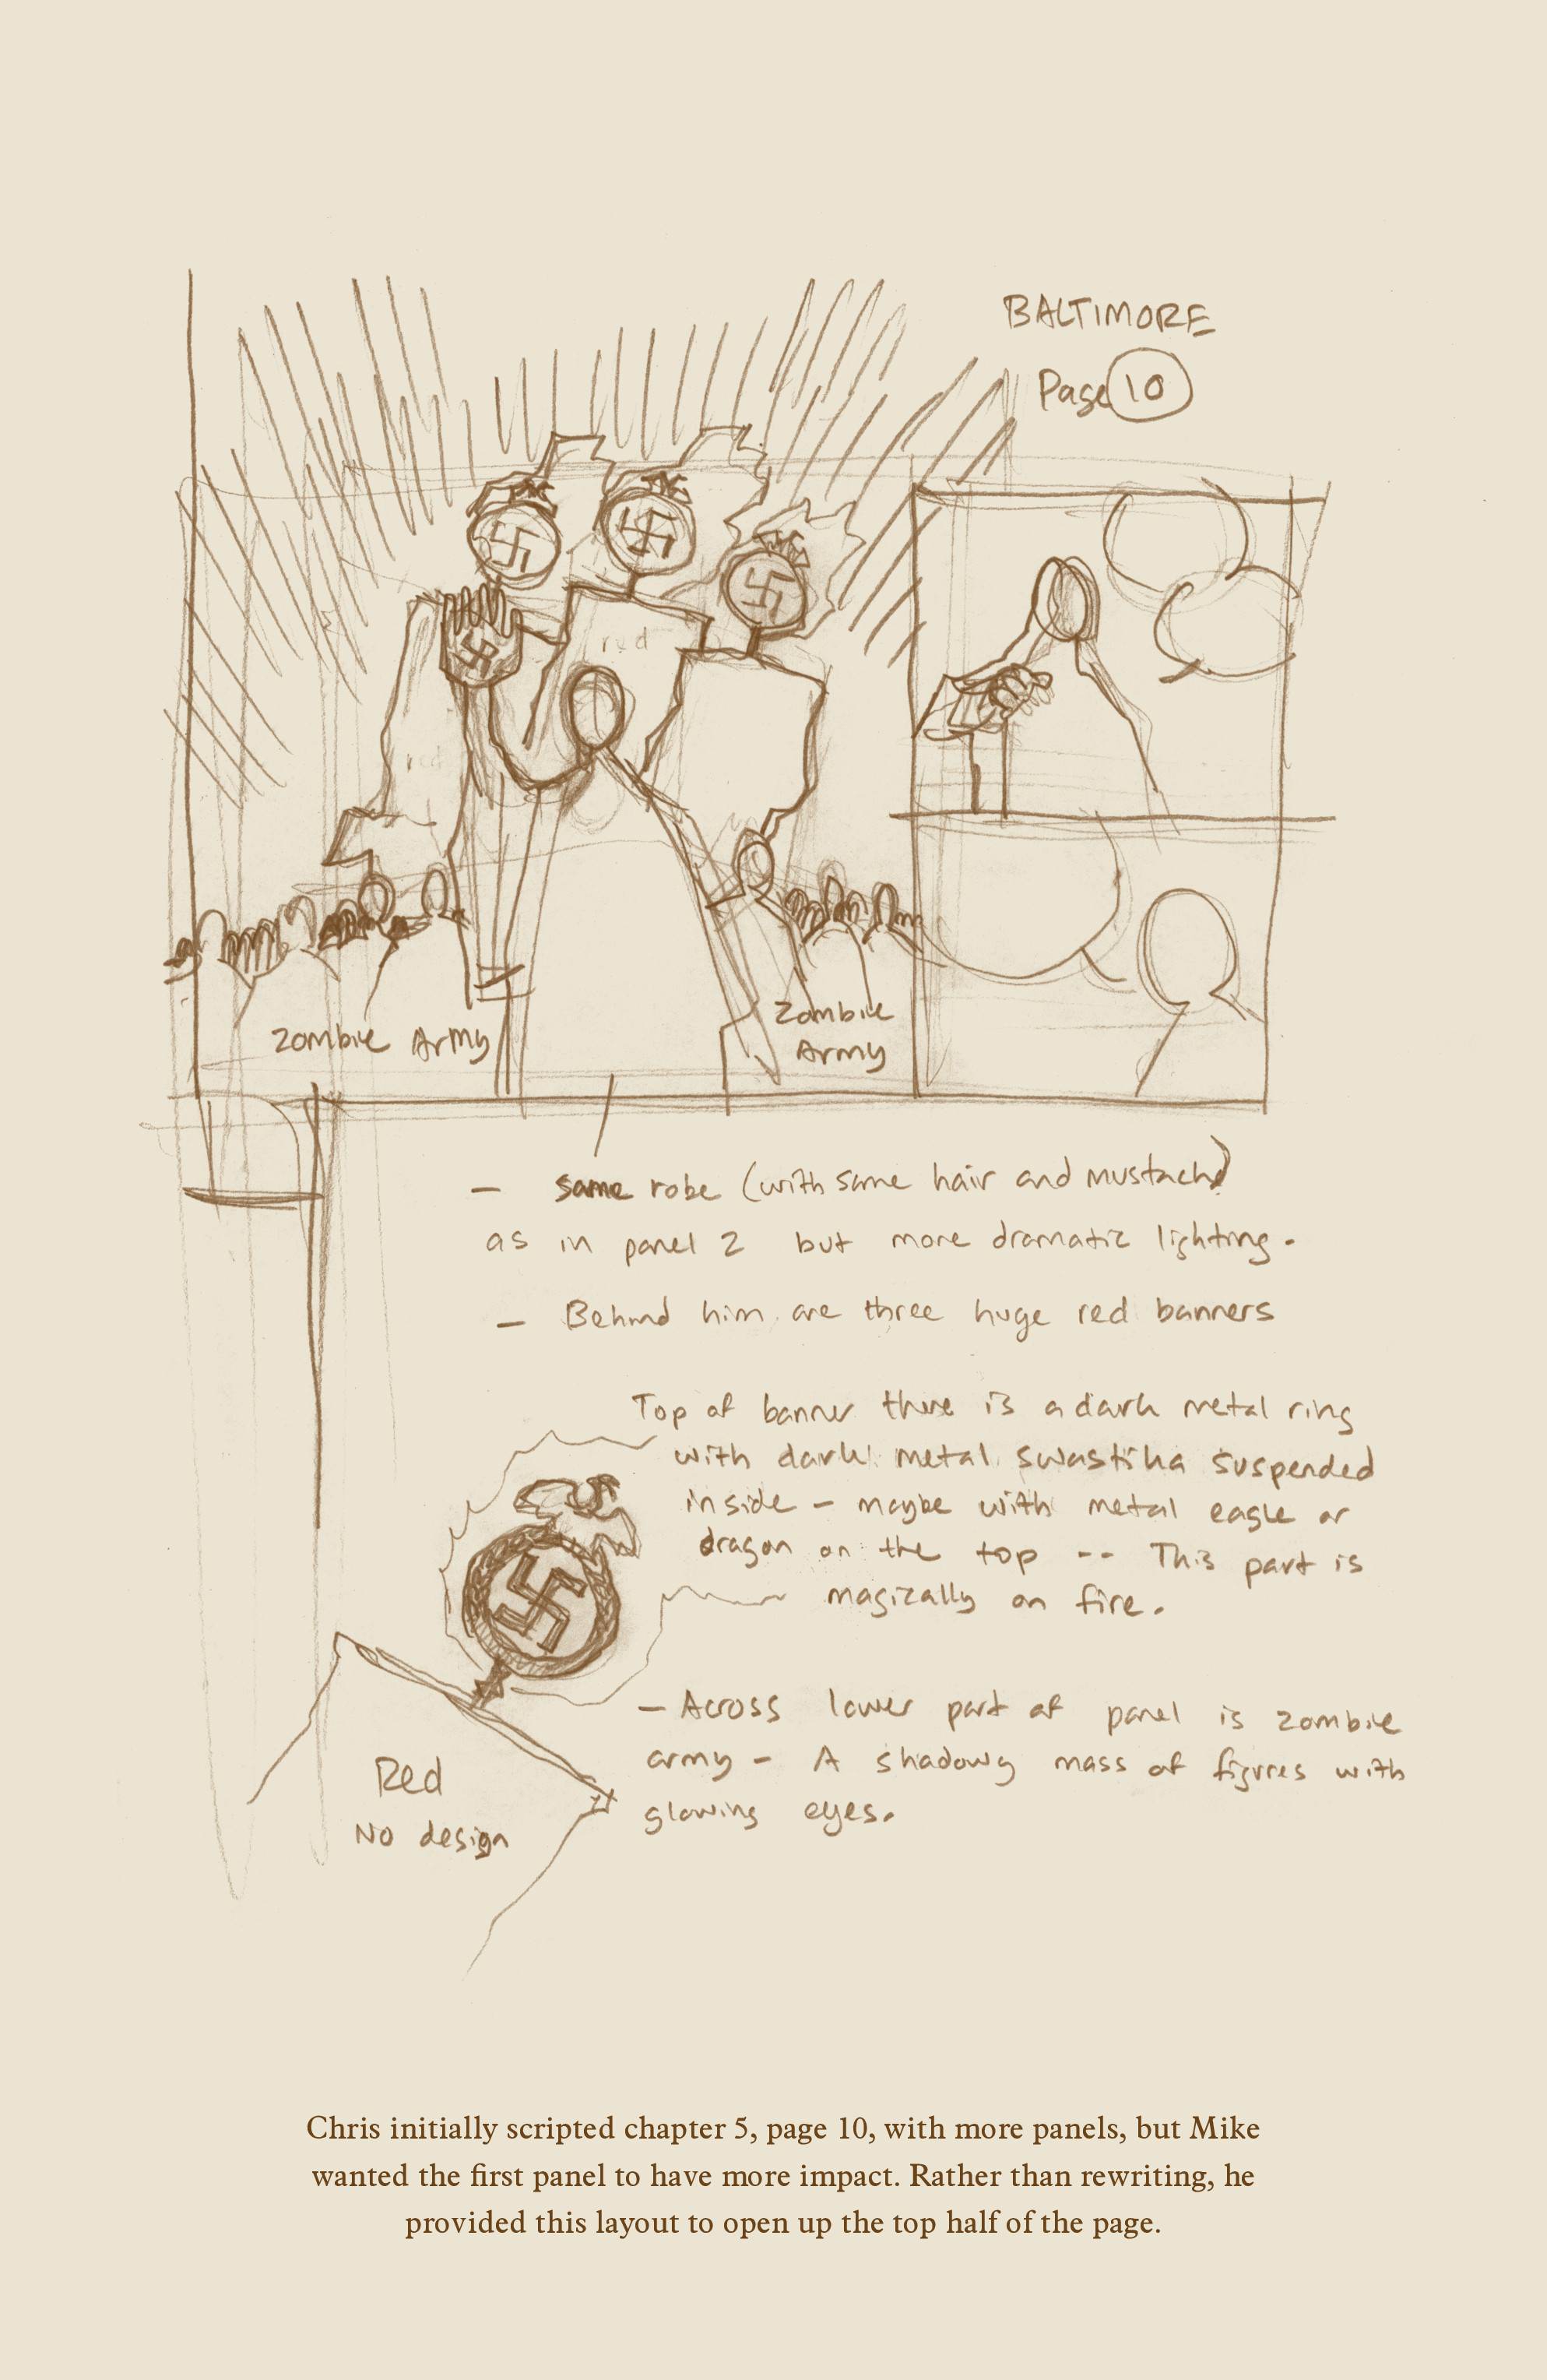 BALTIMORE
Page 10
red
red
Zombie Army
Zombie
Army
– same robe (with same hair and mustache)
as in panel 2 but more dramatic lighting.
– Behind him are three huge red banners
Top of banner there is a dark metal ring
with dark metal swastika suspended
inside – maybe with metal eagle or
dragon on the top -- This part is
magically on fire.
– Across lower part of panel is zombie
army – A shadowy mass of figures with
glowing eyes.
Red
No design
Chris initially scripted chapter 5, page 10, with more panels, but Mike
wanted the first panel to have more impact. Rather than rewriting, he
provided this layout to open up the top half of the page.